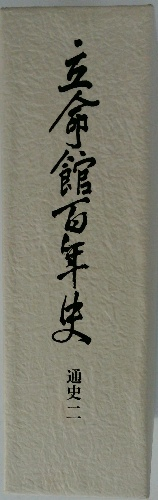 立命館百年史
通史二